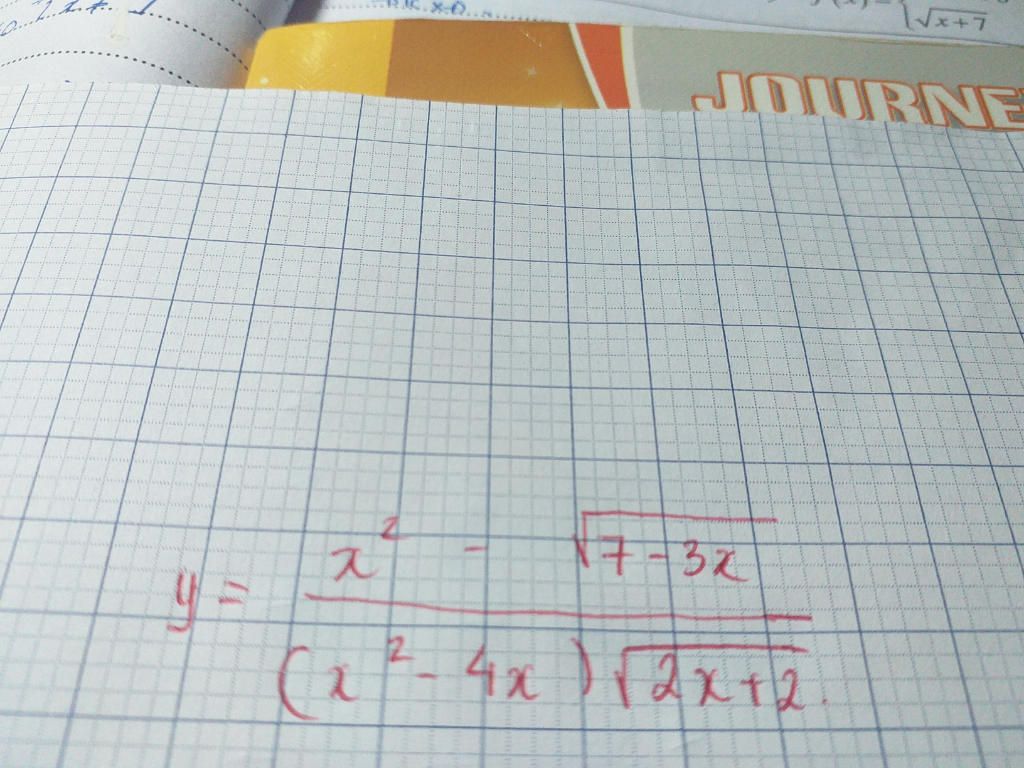 √x+7
JOURNE
y = x² - √7-3x
(x² - 4x) √2x+2.